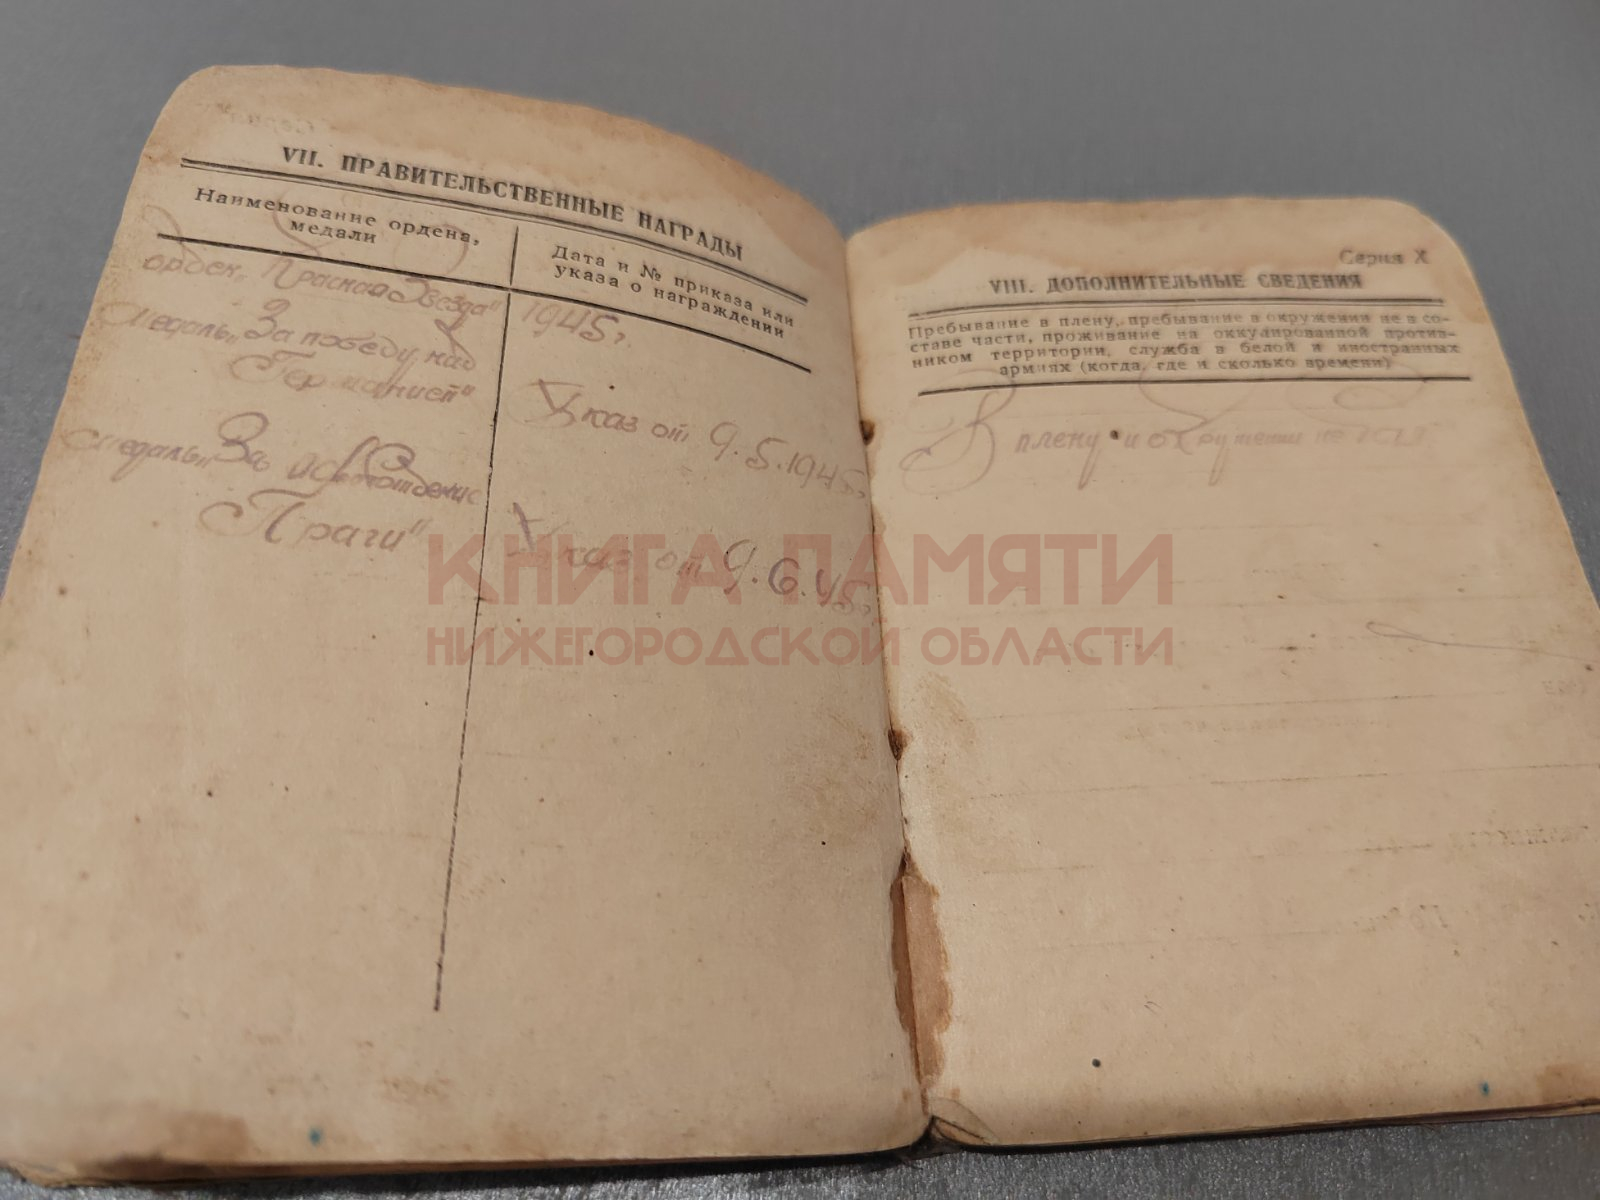 VII. ПРАВИТЕЛЬСТВЕННЫЕ НАГРАДЫ
Наименование ордена,
медали
Дата и № приказа или
указа о награждении
орден „Красная Звезда"
1945 г.
Медаль „За победу над
Германией"
Указ от 9.5.1945г.
Медаль „За освобождение
Праги"
Указ от 9.6.45г.
Серия X
VIII. ДОПОЛНИТЕЛЬНЫЕ СВЕДЕНИЯ
Пребывание в плену, пребывание в окружении не в со-
ставе части, проживание на оккупированной против-
ником территории, служба в белой и иностранных
армиях (когда, где и сколько времени)
В плену и окружении не был
КНИГА ПАМЯТИ
НИЖЕГОРОДСКОЙ ОБЛАСТИ